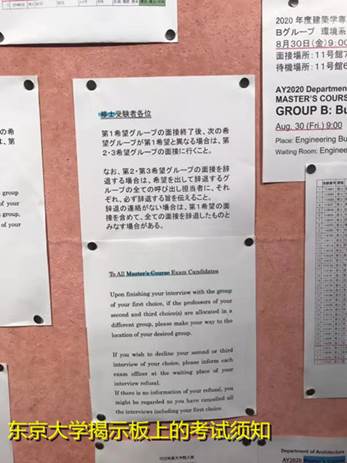 修士受験者各位
第1希望グループの面接終了後、次の希
望グループが第1希望と異なる場合は、第
2・3希望グループの面接に行くこと。
なお、第2・第3希望グループの面接を辞
退する場合は、希望を出して辞退するグ
ループの全ての呼び出し担当者に、それ
ぞれ、必ず辞退する旨を伝えること。
辞退の連絡がない場合は、第1希望の面
接を含めて、全ての面接を辞退したものと
みなす場合がある。
To All Master's Course Exam Candidates
Upon finishing your interview with the group
of your first choice, if the professors of your
second and third choice(s) are allocated in a
different group, please make your way to the
location of your desired group.
If you wish to decline your second or third
interview of your choice, please inform each
exam officer at the waiting place of your
interview refusal.
If there is no information of your refusal, you
might be regarded as you have cancelled all
the interviews including your first choice.
2020 年度建築学専
Bグループ 環境系
8月30日(金)9:00
面接場所：11号館7
待機場所：11号館6
AY2020 Department
MASTER'S COURSE
GROUP B: Bu
Aug. 30 (Fri.) 9:00
Place: Engineering Bu
Waiting Room: Engineer
group
of your
in a
to the
third
each
of your
you
Department of Architecture
AY2020
东京大学揭示板上的考试须知